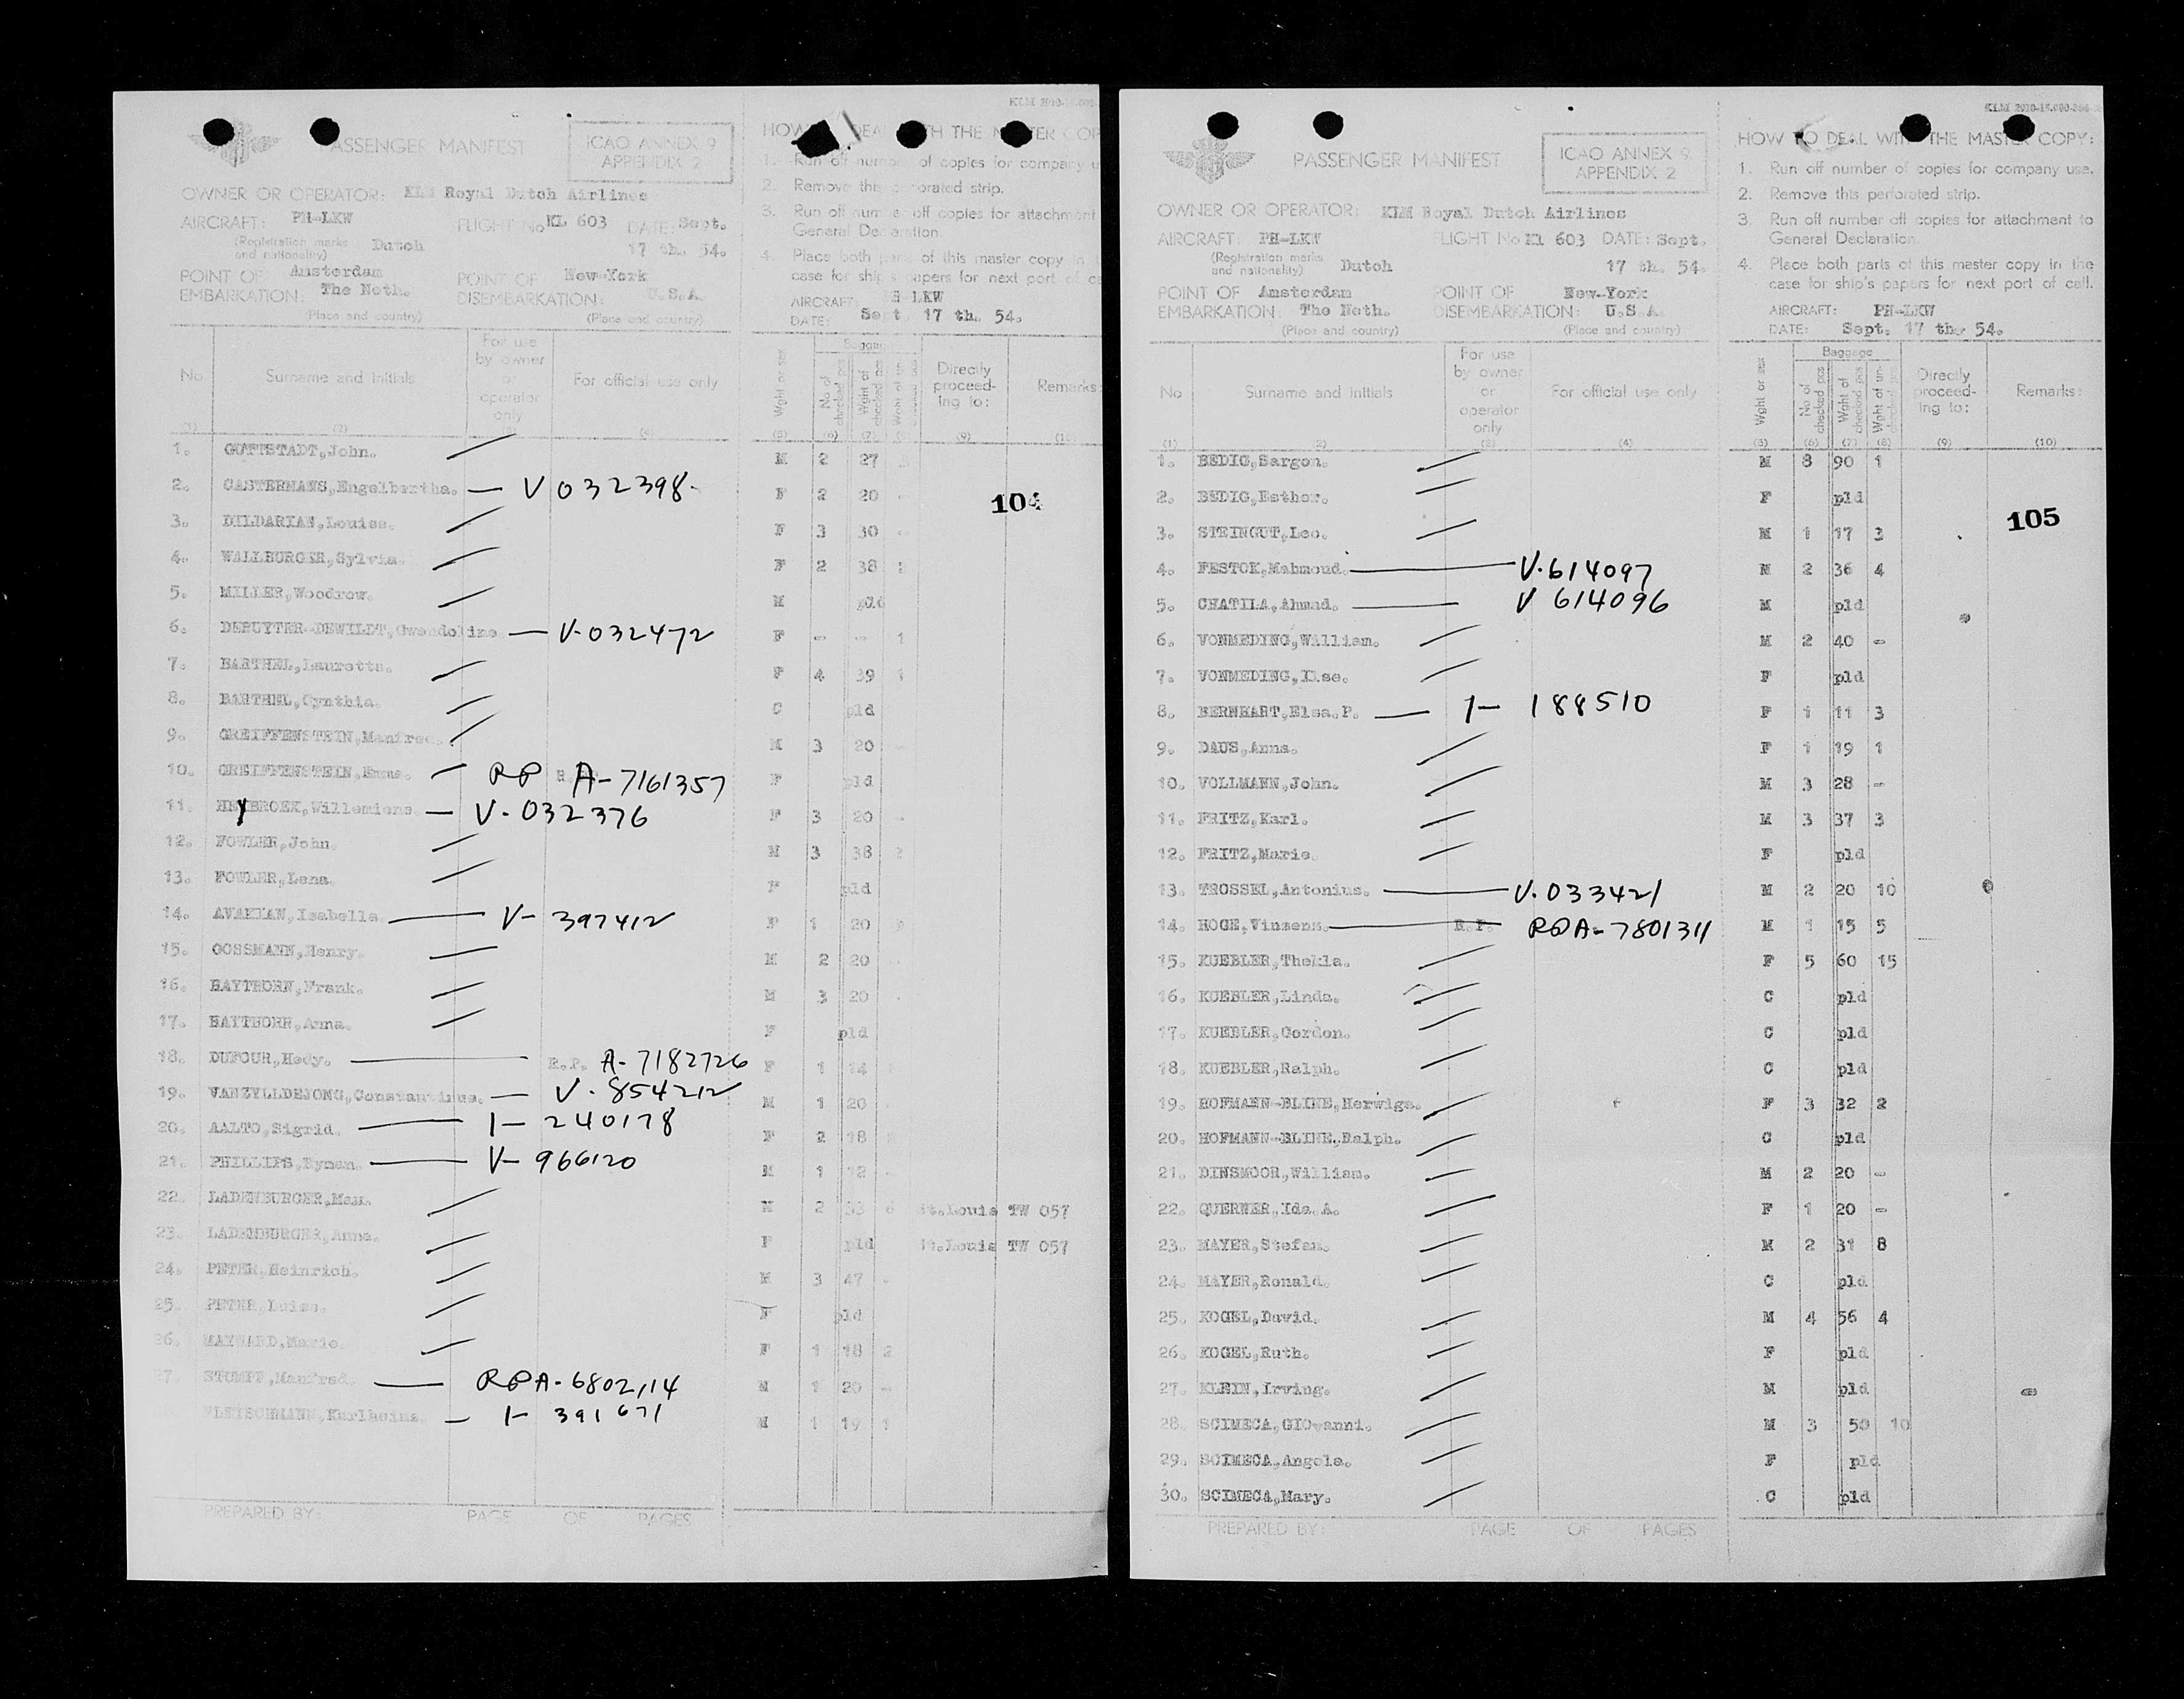 PASSENGER MANIFEST
ICAO ANNEX 9
APPENDIX 2
OWNER OR OPERATOR: KLM Royal Dutch Airlines
AIRCRAFT: PH-LKW FLIGHT No KL 603 DATE: Sept.
(Registration marks and nationality) Dutch 17 th. 54.
POINT OF EMBARKATION: Amsterdam The Neth. POINT OF DISEMBARKATION: New-York U.S.A.
(Place and country) (Place and country)
No Surname and initials For use by owner or operator only For official use only
(1) (2) (3) (4)
1. GOTTSTADT,John.
2. CASTERMANS,Engelbertha. — V032398.
3. DILDARIAN,Louise.
4. WALLBURGER,Sylvia.
5. MILLER,Woodrow.
6. DERUYTER-DEWILDT,Gwendoline — V-032472
7. BARTHEL,Lauretta.
8. BARTHEL,Cynthia.
9. GREIFFENSTEIN,Manfred.
10. GREIFFENSTEIN,Emma. RP A-7161357
11. HEYBROEK,Willemiens — V-032376
12. FOWLER,John.
13. FOWLER,Lena.
14. AVAKIAN,Isabella. — V-397412
15. GOSSMANN,Henry.
16. HAYTHORN,Frank.
17. HAYTHORN,Anna.
18. DUFOUR,Hedy. — R.P. A-7182726
19. VANZYLLDEJONG,Constantinus. — V-854212
20. AALTO,Sigrid. — I- 240178
21. PHILLIPS,Hyman. — V- 966120
22. LADENBURGER,Max.
23. LADENBURGER,Anna.
24. PETER,Heinrich.
25. PETER,Luise.
26. MAYNARD,Marie.
27. STUMPF,Manfred. — RPA-6802114
FLEISCHMANN,Karlheinz. — I- 391671
PREPARED BY: PAGE OF PAGES
HOW TO DEAL WITH THE MASTER COP
1. Run off number of copies for company u
2. Remove this perforated strip.
3. Run off number off copies for attachment
General Declaration.
4. Place both parts of this master copy in t
case for ship's papers for next port of ca
AIRCRAFT: PH-LKW
DATE: Sept. 17 th. 54.
Wght or sex Baggage No of checked pcs Wght of checked pcs Directly proceed-ing to: Remarks:
(5) (6) (7) (8) (9) (10)
M 2 27
F 2 20 -
104
F 3 30 -
F 2 38 2
M pld
F - - 1
F 4 39 1
C pld
M 3 20 -
F pld
F 3 20 -
M 3 38 2
F pld
F 1 20
M 2 20 -
M 3 20 -
F pld
F 1 14
M 1 20
F 2 18
M 1 12 -
M 2 33 6 St.Louis TW 057
F pld St.Louis TW 057
M 3 47 -
F pld
F 1 18 2
M 1 20 -
M 1 19 1
PASSENGER MANIFEST
ICAO ANNEX 9
APPENDIX 2
OWNER OR OPERATOR: KLM Royal Dutch Airlines
AIRCRAFT: PH-LKW FLIGHT No Kl 603 DATE: Sept.
(Registration marks and nationality) Dutch 17 th. 54.
POINT OF EMBARKATION: Amsterdam The Neth. POINT OF DISEMBARKATION: New-York U.S.A.
(Place and country) (Place and country)
No Surname and initials For use by owner or operator only For official use only
(1) (2) (3) (4)
1. BEDIG,Sargon.
2. BEDIG,Esther.
3. STEINGUT,Leo.
4. FESTOK,Mahmoud. — V-614097
5. CHATILA,Ahmad. — V 614096
6. VONMEDING,William.
7. VONMEDING,Ilse.
8. BERNHART,Elsa.P. — I- 188510
9. DAUS,Anna.
10. VOLLMANN,John.
11. FRITZ,Karl.
12. FRITZ,Marie.
13. TROSSEL,Antonius. — V.033421
14. HOGE,Vinzenz. — R.P. RPA-7801311
15. KUEBLER,Thekla.
16. KUEBLER,Linda.
17. KUEBLER,Gordon.
18. KUEBLER,Ralph.
19. HOFMANN-BLINE,Herwiga.
20. HOFMANN-BLINE,Ralph.
21. DINSMOOR,William.
22. QUERNER,Ida.A.
23. MAYER,Stefan.
24. MAYER,Ronald.
25. KOGEL,David.
26. KOGEL,Ruth.
27. KLEIN,Irving.
28. SCIMECA,GIOvanni.
29. SCIMECA,Angela.
30. SCIMECA,Mary.
PREPARED BY: PAGE OF PAGES
HOW TO DEAL WITH THE MASTER COPY:
1. Run off number of copies for company use.
2. Remove this perforated strip.
3. Run off number off copies for attachment to
General Declaration.
4. Place both parts of this master copy in the
case for ship's papers for next port of call.
AIRCRAFT: PH-LKW
DATE: Sept. 17 th. 54.
Wght or sex Baggage No of checked pcs Wght of checked pcs Directly proceed-ing to: Remarks:
(5) (6) (7) (8) (9) (10)
M 8 90 1
F pld
105
M 1 17 3
M 2 36 4
M pld
M 2 40 -
F pld
F 1 11 3
F 1 19 1
M 3 28 -
M 3 37 3
F pld
M 2 20 10
M 1 15 5
F 5 60 15
C pld
C pld
C pld
F 3 32 2
C pld
M 2 20 -
F 1 20 -
M 2 31 8
C pld
M 4 56 4
F pld
M pld
M 3 50 10
F pld
C pld